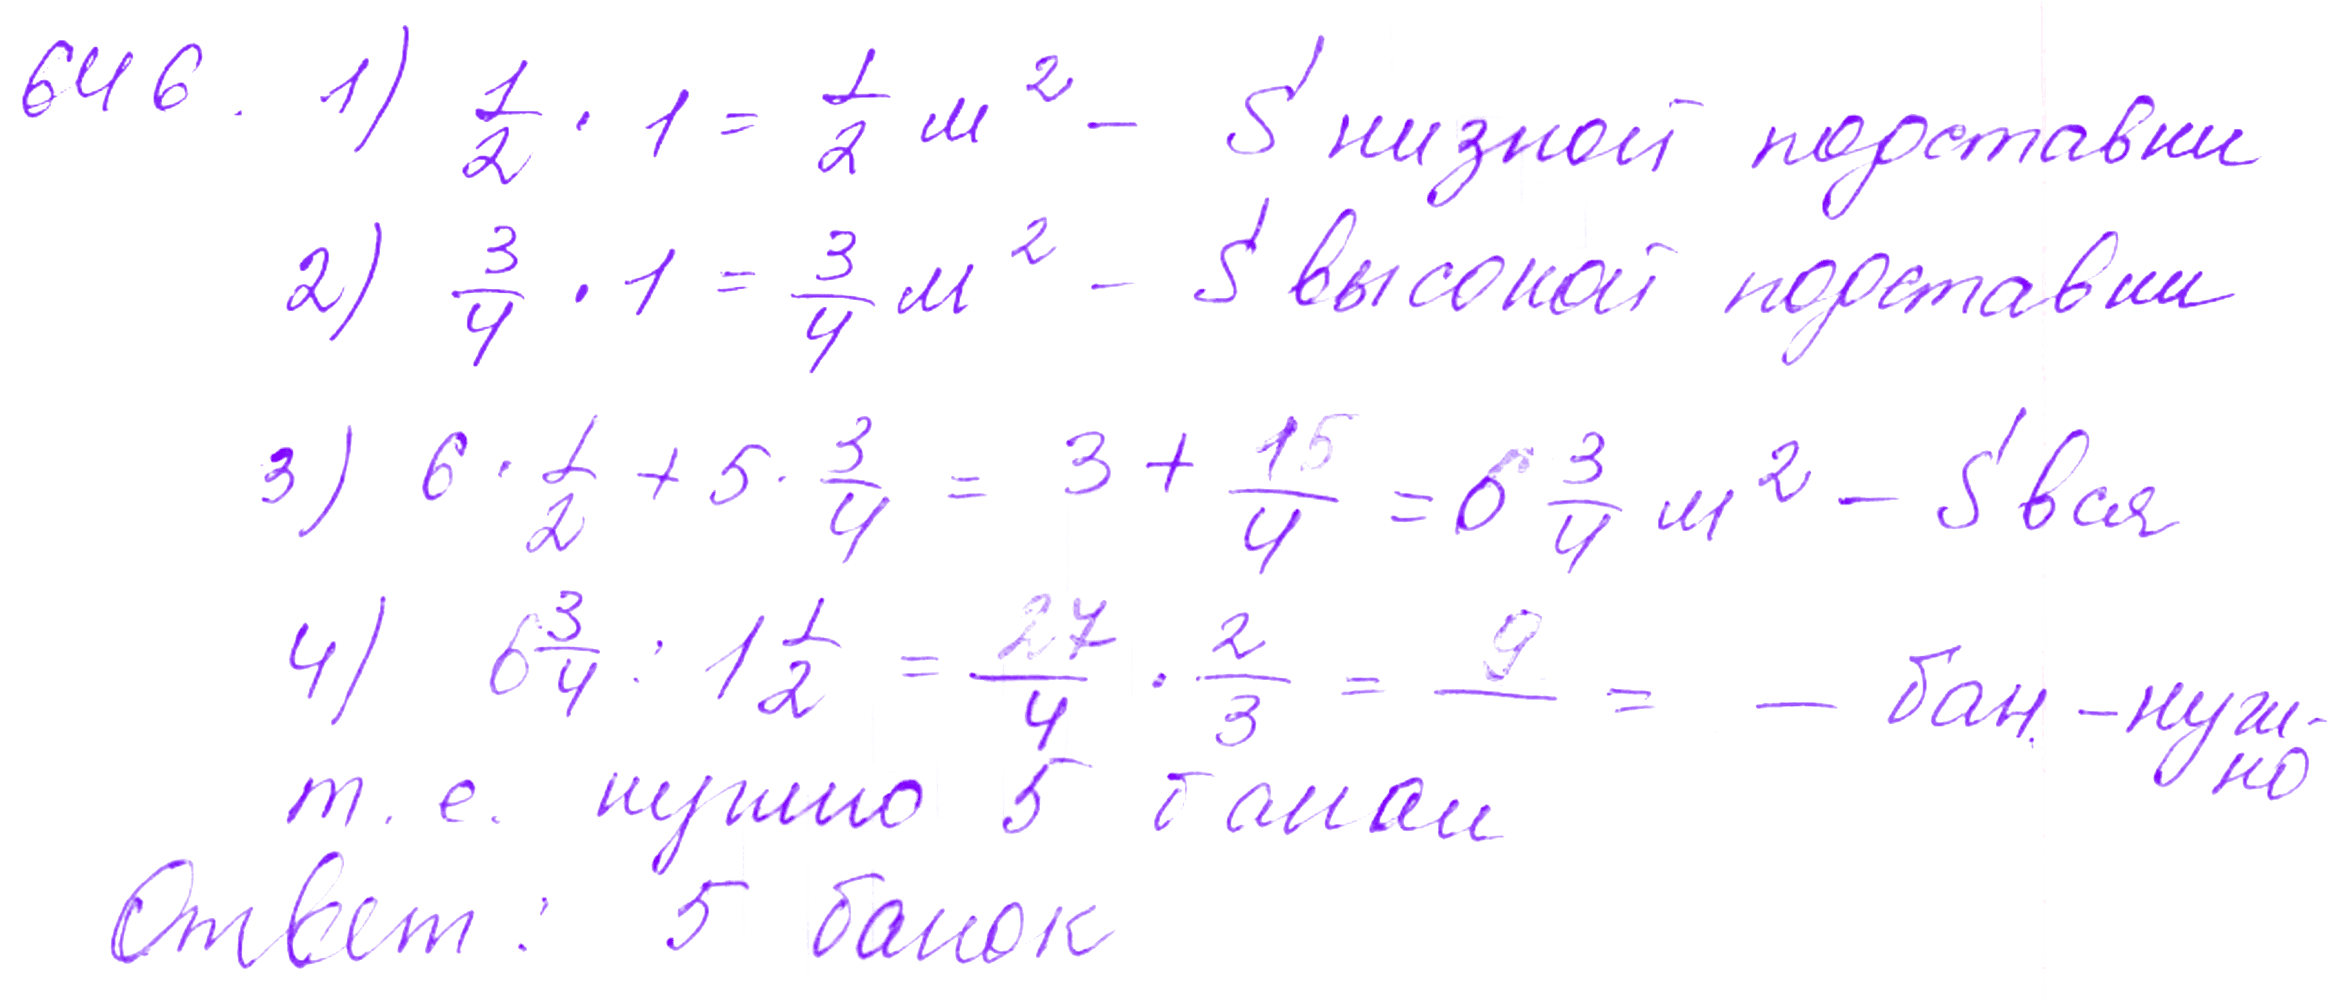 646. 1) 1/2 · 1 = 1/2 м² – S низкой подставки
2) 3/4 · 1 = 3/4 м² – S высокой подставки
3) 6 · 1/2 + 5 · 3/4 = 3 + 15/4 = 6 3/4 м² – S вся
4) 6 3/4 : 1 1/2 = 27/4 · 2/3 = 9/ = — бан. – нуж-
но
т. е. нужно 5 банки
Ответ: 5 банок